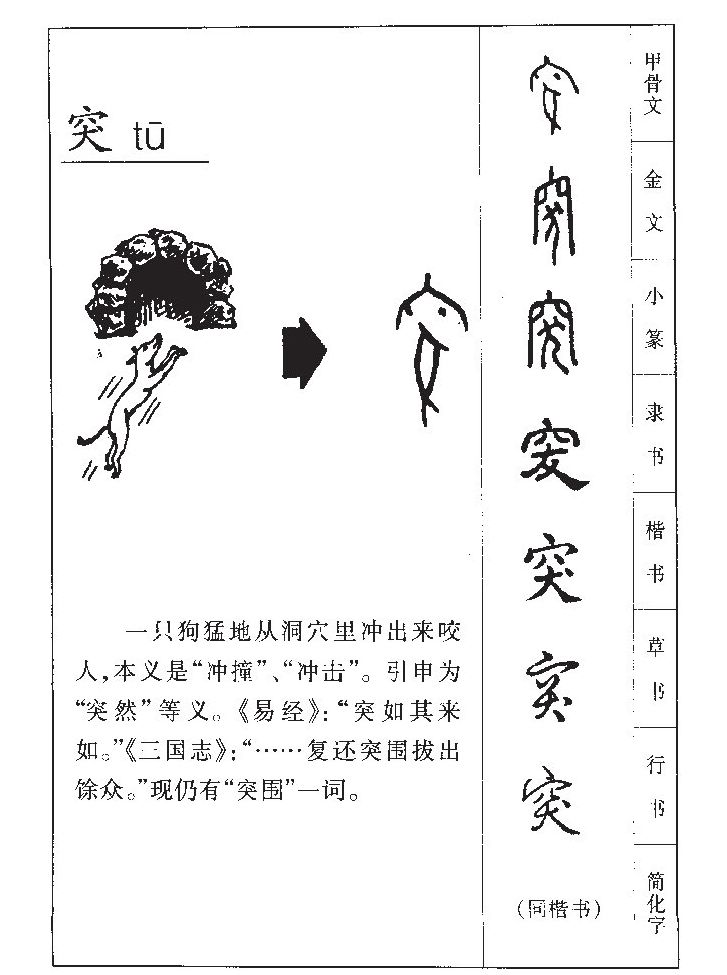 突 tū
一只狗猛地从洞穴里冲出来咬
人,本义是“冲撞”、“冲击”。引申为
“突然”等义。《易经》:“突如其来
如。”《三国志》:“……复还突围拔出
馀众。”现仍有“突围”一词。
突 甲骨文
突 金文
突 小篆
突 隶书
突 楷书
突 草书
突 行书
(同楷书) 简化字